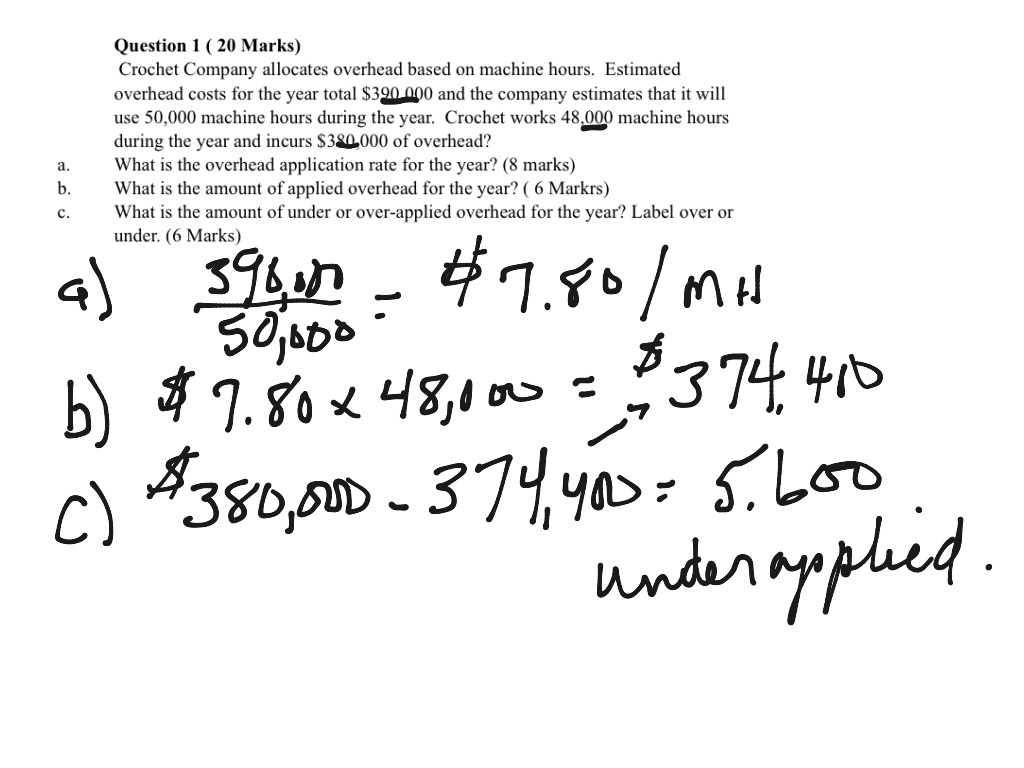 Question 1 ( 20 Marks)
Crochet Company allocates overhead based on machine hours. Estimated
overhead costs for the year total $390,000 and the company estimates that it will
use 50,000 machine hours during the year. Crochet works 48,000 machine hours
during the year and incurs $380,000 of overhead?
a. What is the overhead application rate for the year? (8 marks)
b. What is the amount of applied overhead for the year? ( 6 Markrs)
c. What is the amount of under or over-applied overhead for the year? Label over or
under. (6 Marks)
a) 390,000 = $7.80/MH
50,000
b) $7.80 x 48,000 = $374,400
c) $380,000 - 374,400 = 5.600
underapplied.